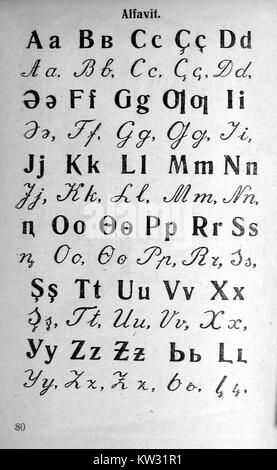 Alfavit.
Aa Bʙ Cc Çç Dd
Aa, Bʙ, Cc, Çç, Dd,
Əə Ff Gg Ƣƣ Ii
Əə, Ff, Gg, Ƣƣ, Ii,
Jj Kk Ll Mm Nn
Jj, Kk, Ll, Mm, Nn,
ꞑ Oo Ɵɵ Pp Rr Ss
ꞑ, Oo, Ɵɵ, Pp, Rr, Ss,
Şş Tt Uu Vv Xx
Şş, Tt, Uu, Vv, Xx,
Yy Zz Ƶƶ Ьь
Yy, Zz, Ƶƶ, Ьь,
80
alamy
KW31R1